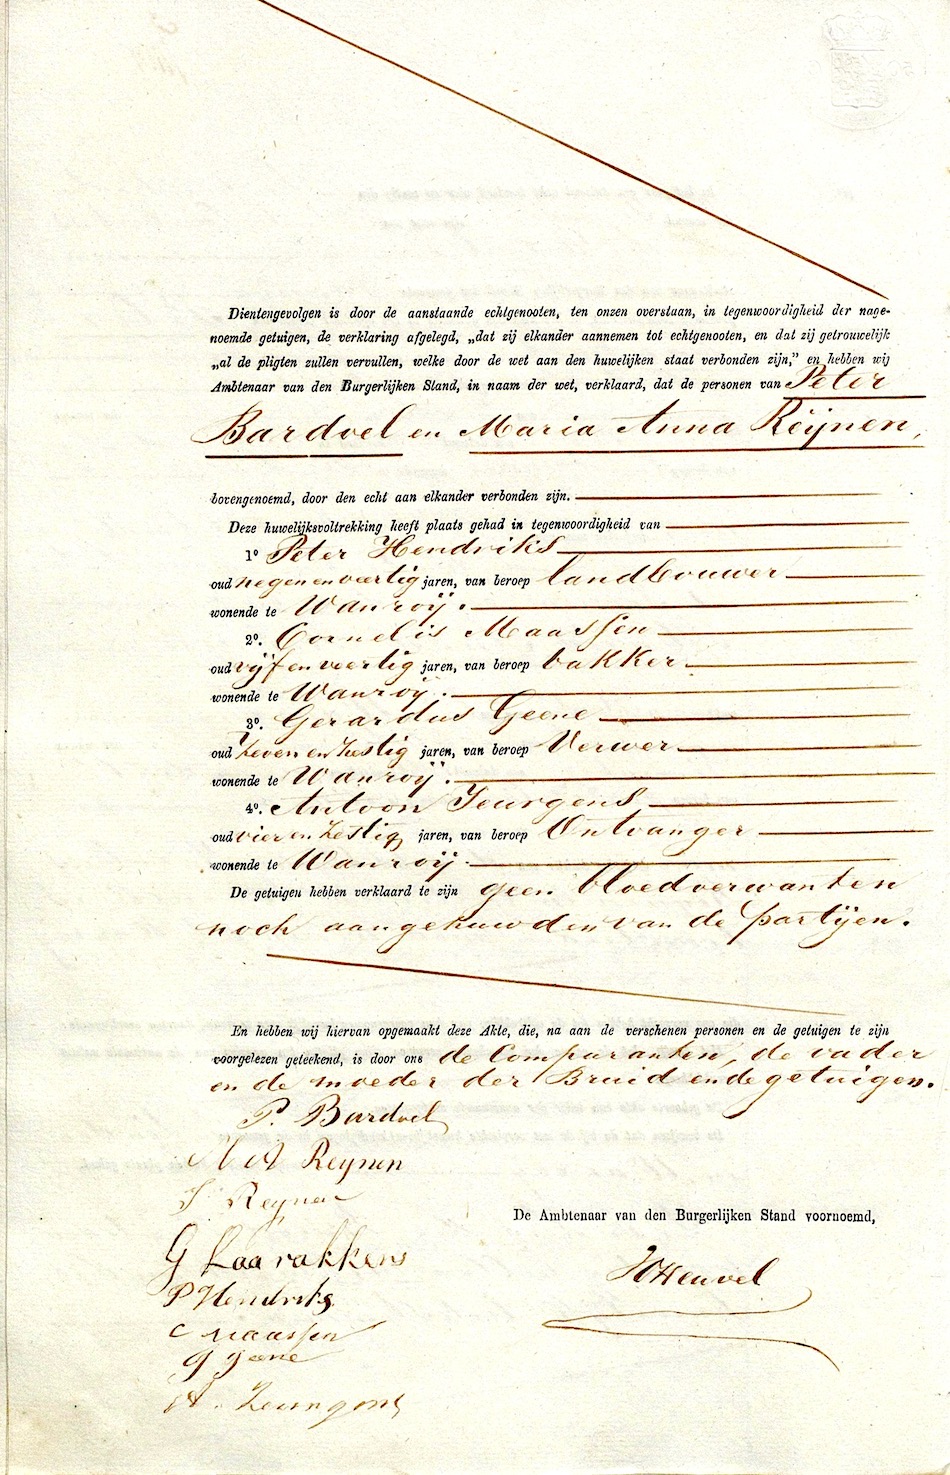 Dientengevolgen is door de aanstaande echtgenooten, ten onzen overstaan, in tegenwoordigheid der nage-
noemde getuigen, de verklaring afgelegd, „dat zij elkander aannemen tot echtgenooten, en dat zij getrouwelijk
„al de pligten zullen vervullen, welke door de wet aan den huwelijken staat verbonden zijn,” en hebben wij
Ambtenaar van den Burgerlijken Stand, in naam der wet, verklaard, dat de personen van Peter
Bardoel en Maria Anna Reijnen,
bovengenoemd, door den echt aan elkander verbonden zijn.
Deze huwelijksvoltrekking heeft plaats gehad in tegenwoordigheid van
1o Peter Hendriks
oud negen en veertig jaren, van beroep landbouwer
wonende te Wanroij.
2o. Cornelis Maassen
oud vijf en veertig jaren, van beroep bakker
wonende te Wanroij.
3o. Gerardus Geene
oud zeven en zestig jaren, van beroep Verwer
wonende te Wanroij.
4o. Antoon Jeurgens
oud vier en zestig jaren, van beroep Ontvanger
wonende te Wanroij.
De getuigen hebben verklaard te zijn geen bloedverwanten
noch aangehuwden van de partijen.
En hebben wij hiervan opgemaakt deze Akte, die, na aan de verschenen personen en de getuigen te zijn
voorgelezen geteekend, is door ons de Comparanten, de vader
en de moeder der Bruid en de getuigen.
P. Bardoel
M A Reynen
J Reynen
G Laarakkers
P Hendriks
De Ambtenaar van den Burgerlijken Stand voornoemd,
Heuvel
C Maassen
G Geene
A. Jeurgens